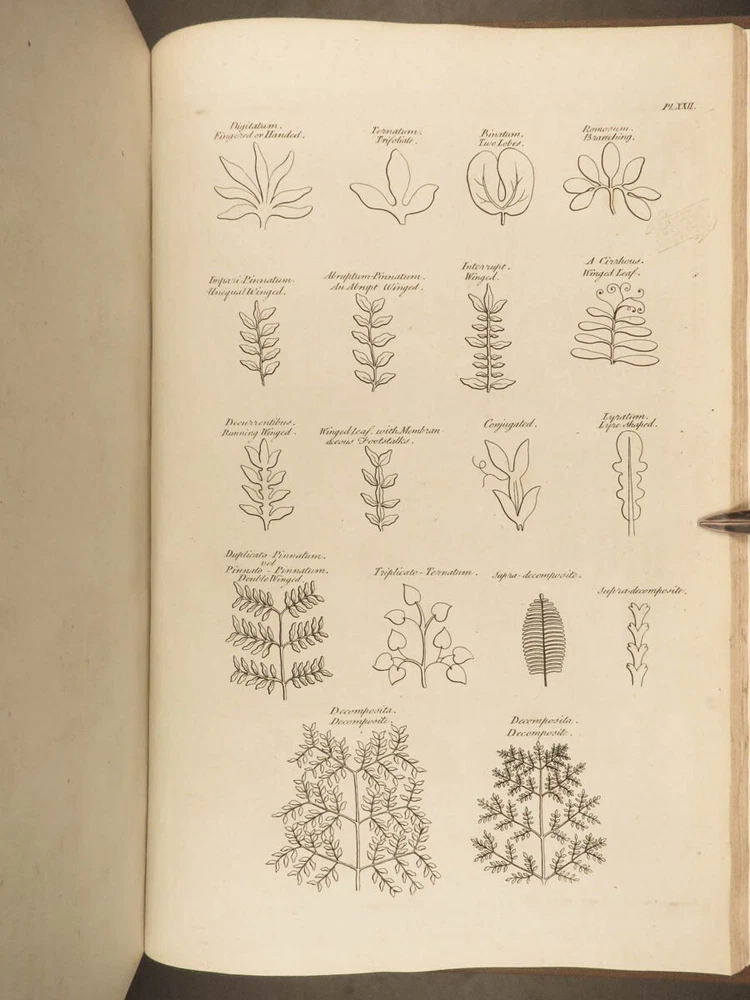 Pl. XXII.
Digitatum.
Fingered or Handed.
Ternatum.
Trifoliate.
Binatum.
Two Lobes.
Ramosum.
Branching.
Impari-Pinnatum.
Unequal Winged.
Abruptum-Pinnatum.
An Abrupt Winged.
Interrupt.
Winged.
A Cirrhous.
Winged Leaf.
Decurrentibus.
Running Winged.
Winged Leaf. with Membran
aceous Footstalks.
Conjugated.
Lyratum.
Lyre Shaped.
Duplicato Pinnatum.
vel
Pinnato-Pinnatum.
Double Winged.
Triplicato-Ternatum.
Supra-decomposite.
Supra-decomposite.
Decomposita.
Decomposite.
Decomposita.
Decomposite.